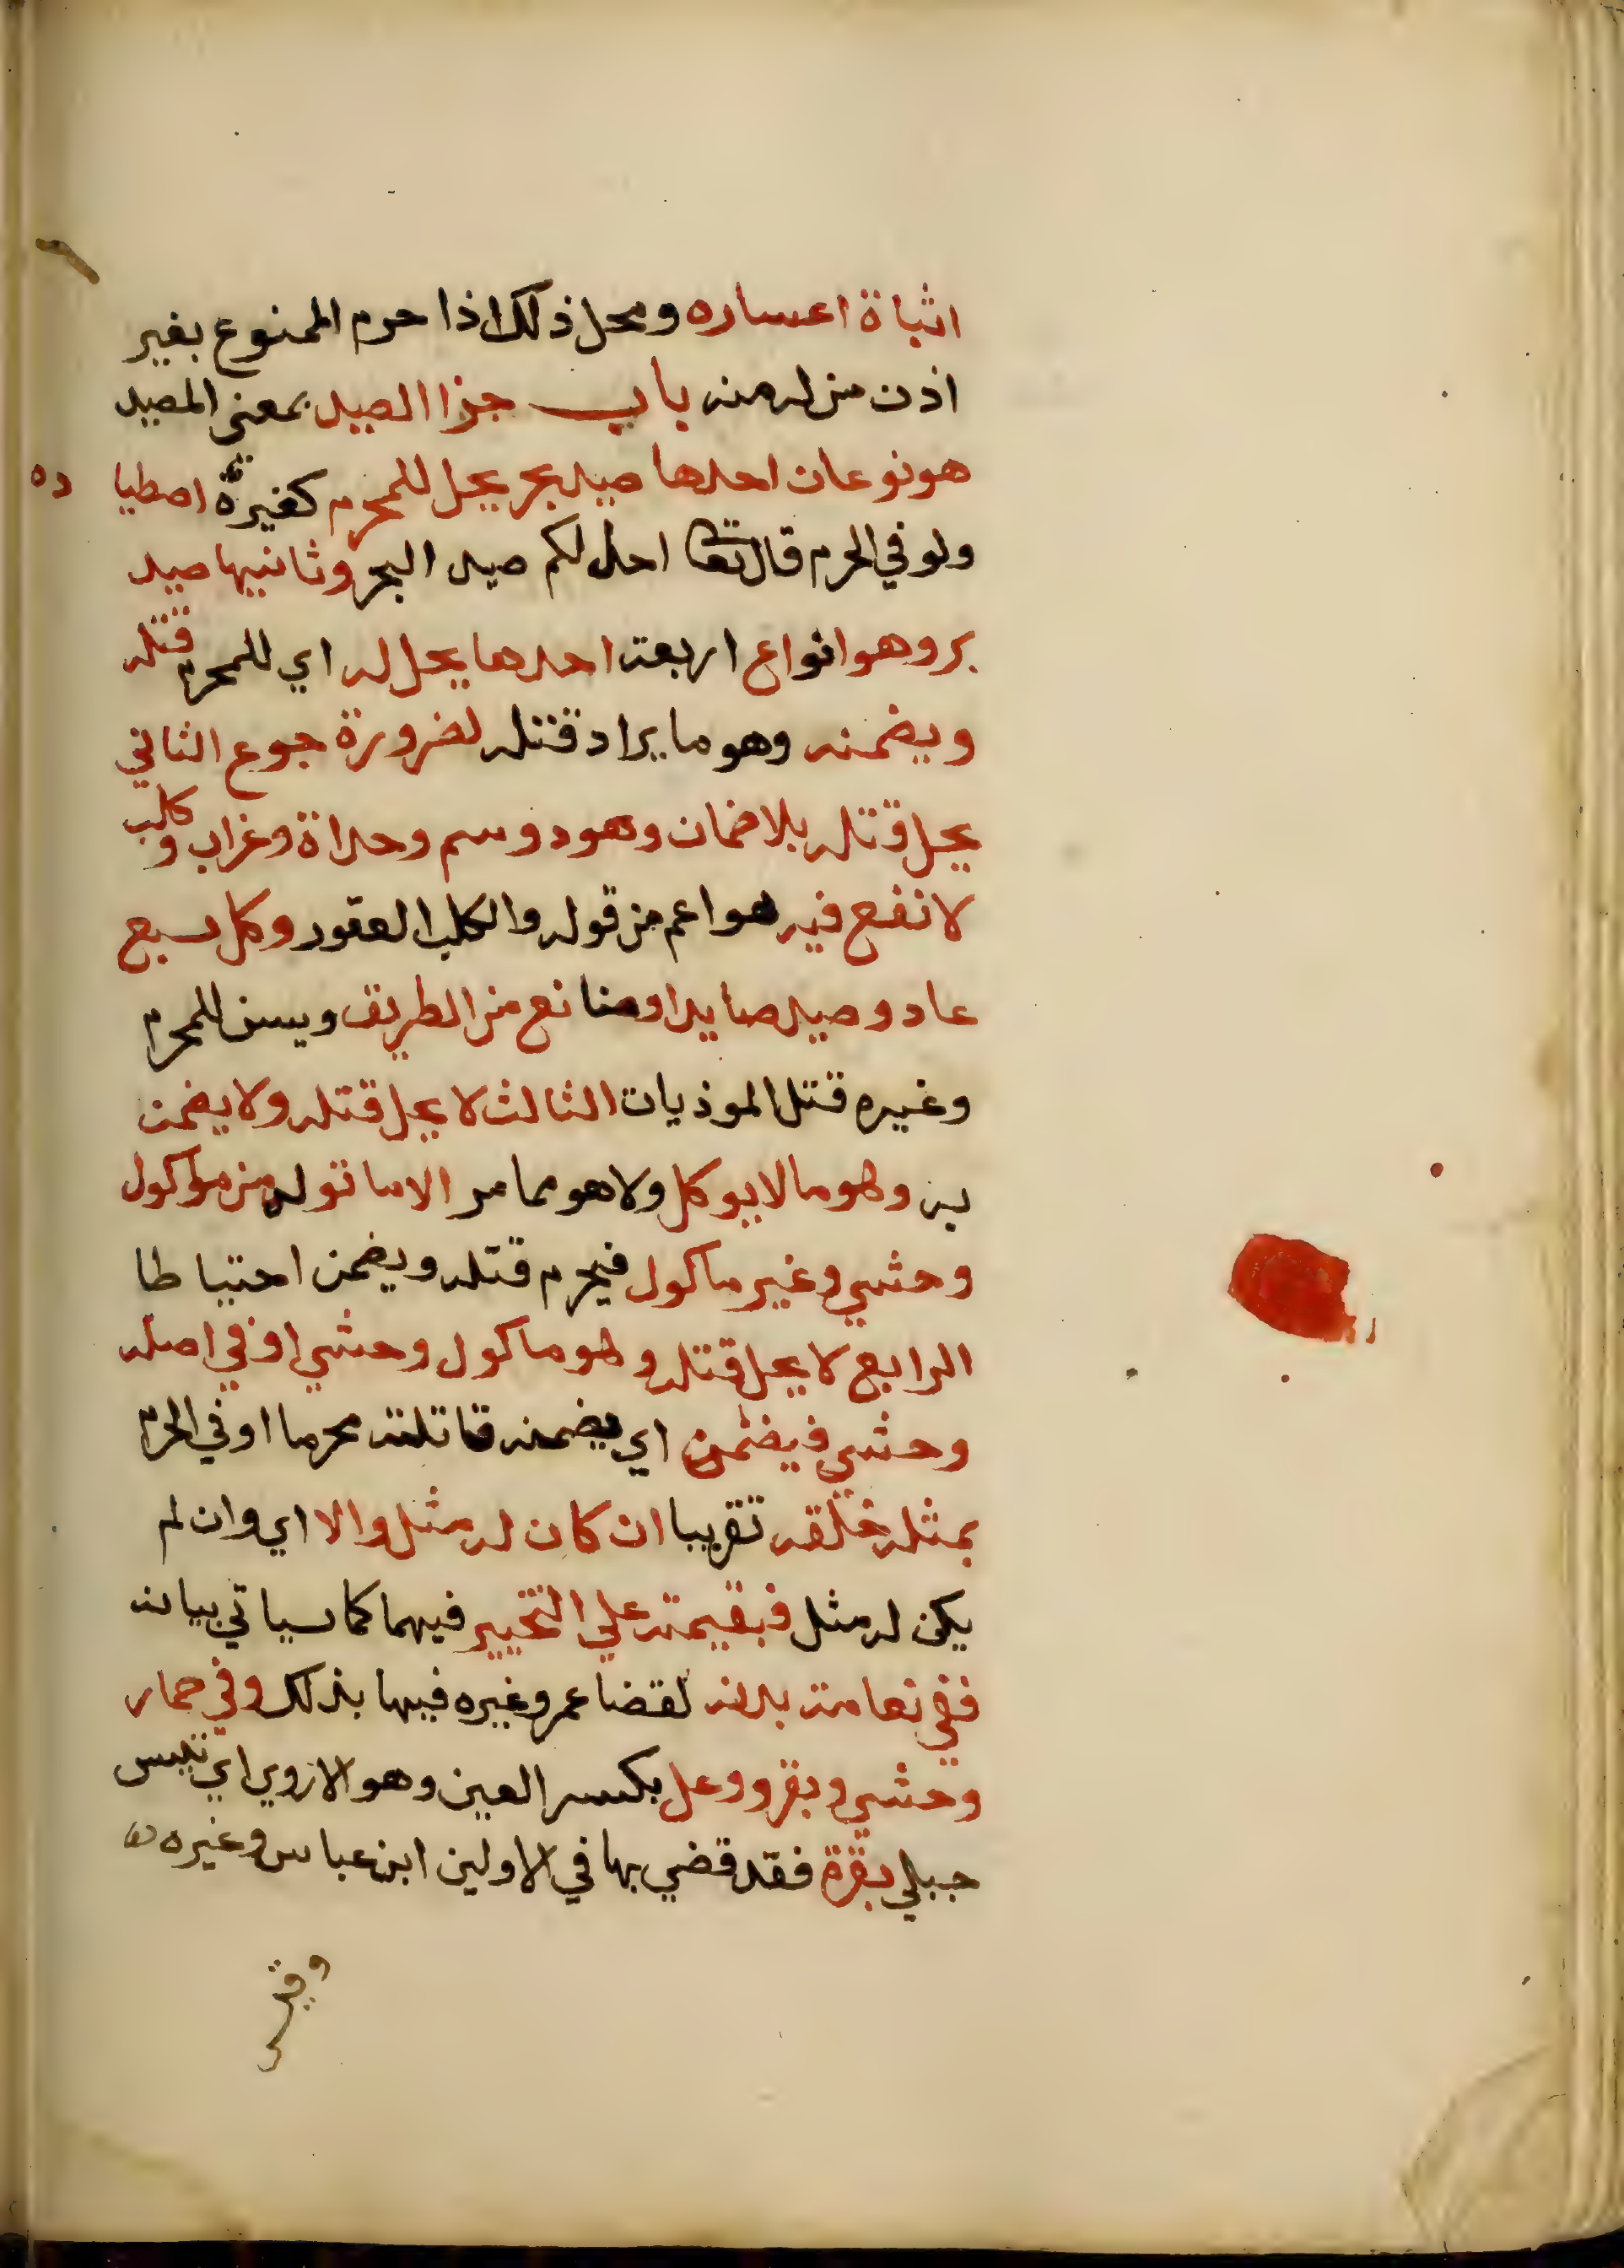 اثباة اعساره ومحل ذلك اذا حرم الممنوع بغير
اذن من له منه باب جزا الصيد بمعنى المصيد
هو نوعان احدها صيد بحر يحل للمحرم كغيره اصطيا ده
ولو في الحرم قال تعا احل لكم صيد البحر وثانيها صيد
بر وهو انواع اربعة احدها يحل له اي للمحرم قتله
ويضمنه وهو ما يراد قتله لضرورة جوع الثاني
يحل قتله بلا ضمان وهو د وسم وحداة وغراب وكلب
لا نفع فيه هو اعم من قوله والكلب العقور وكل سبع
عاد وصيد صايد او مانع من الطريق ويسن للمحرم
وغيره قتل الموذيات الثالث لا يحل قتله ولا يضمن
به وهو ما لا يوكل ولا هو مما مر الا ما تولد من ماكول
وحشي وغير ماكول فيحرم قتله ويضمن احتياطا
الرابع لا يحل قتله وهو ماكول وحشي او في اصله
وحشي فيضمن اي يضمنه قاتله محرما او في الحرم
بمثله خلقة تقريبا ان كان له مثل والا اي وان لم
يكن له مثل فبقيمته علي التخيير فيهما كما سياتي بيانه
ففي نعامة بدنة لقضا عمر وغيره فيها بذلك وفي حمار
وحشي وبقر ووعل بكسر العين وهو الاروي اي تيس
جبلي بقرة فقد قضي بها في الاولين ابن عباس وغيره
وفي